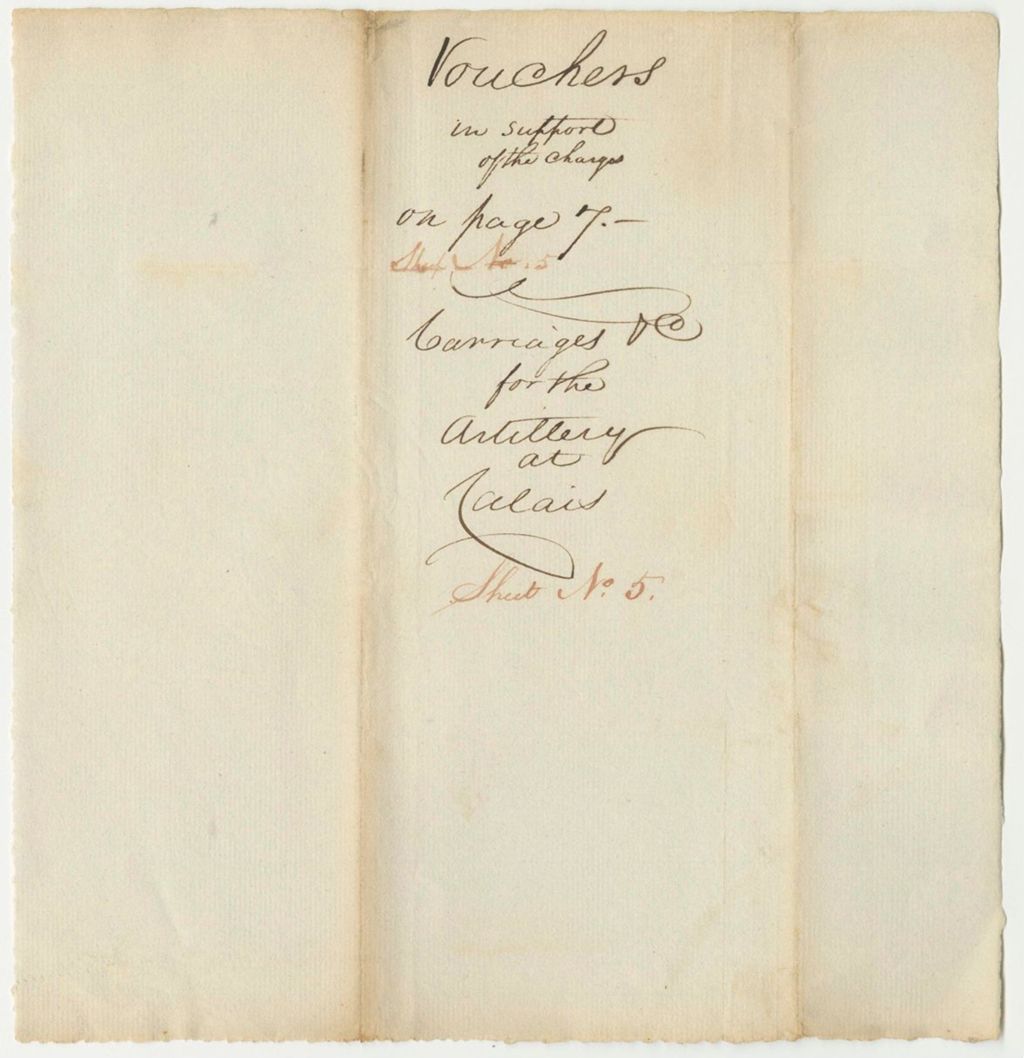 Vouchers
in support
of the charges
on page 7.—
Sheet No. 5
Carriages &c
for the
Artillery
at
Calais
Sheet No. 5.